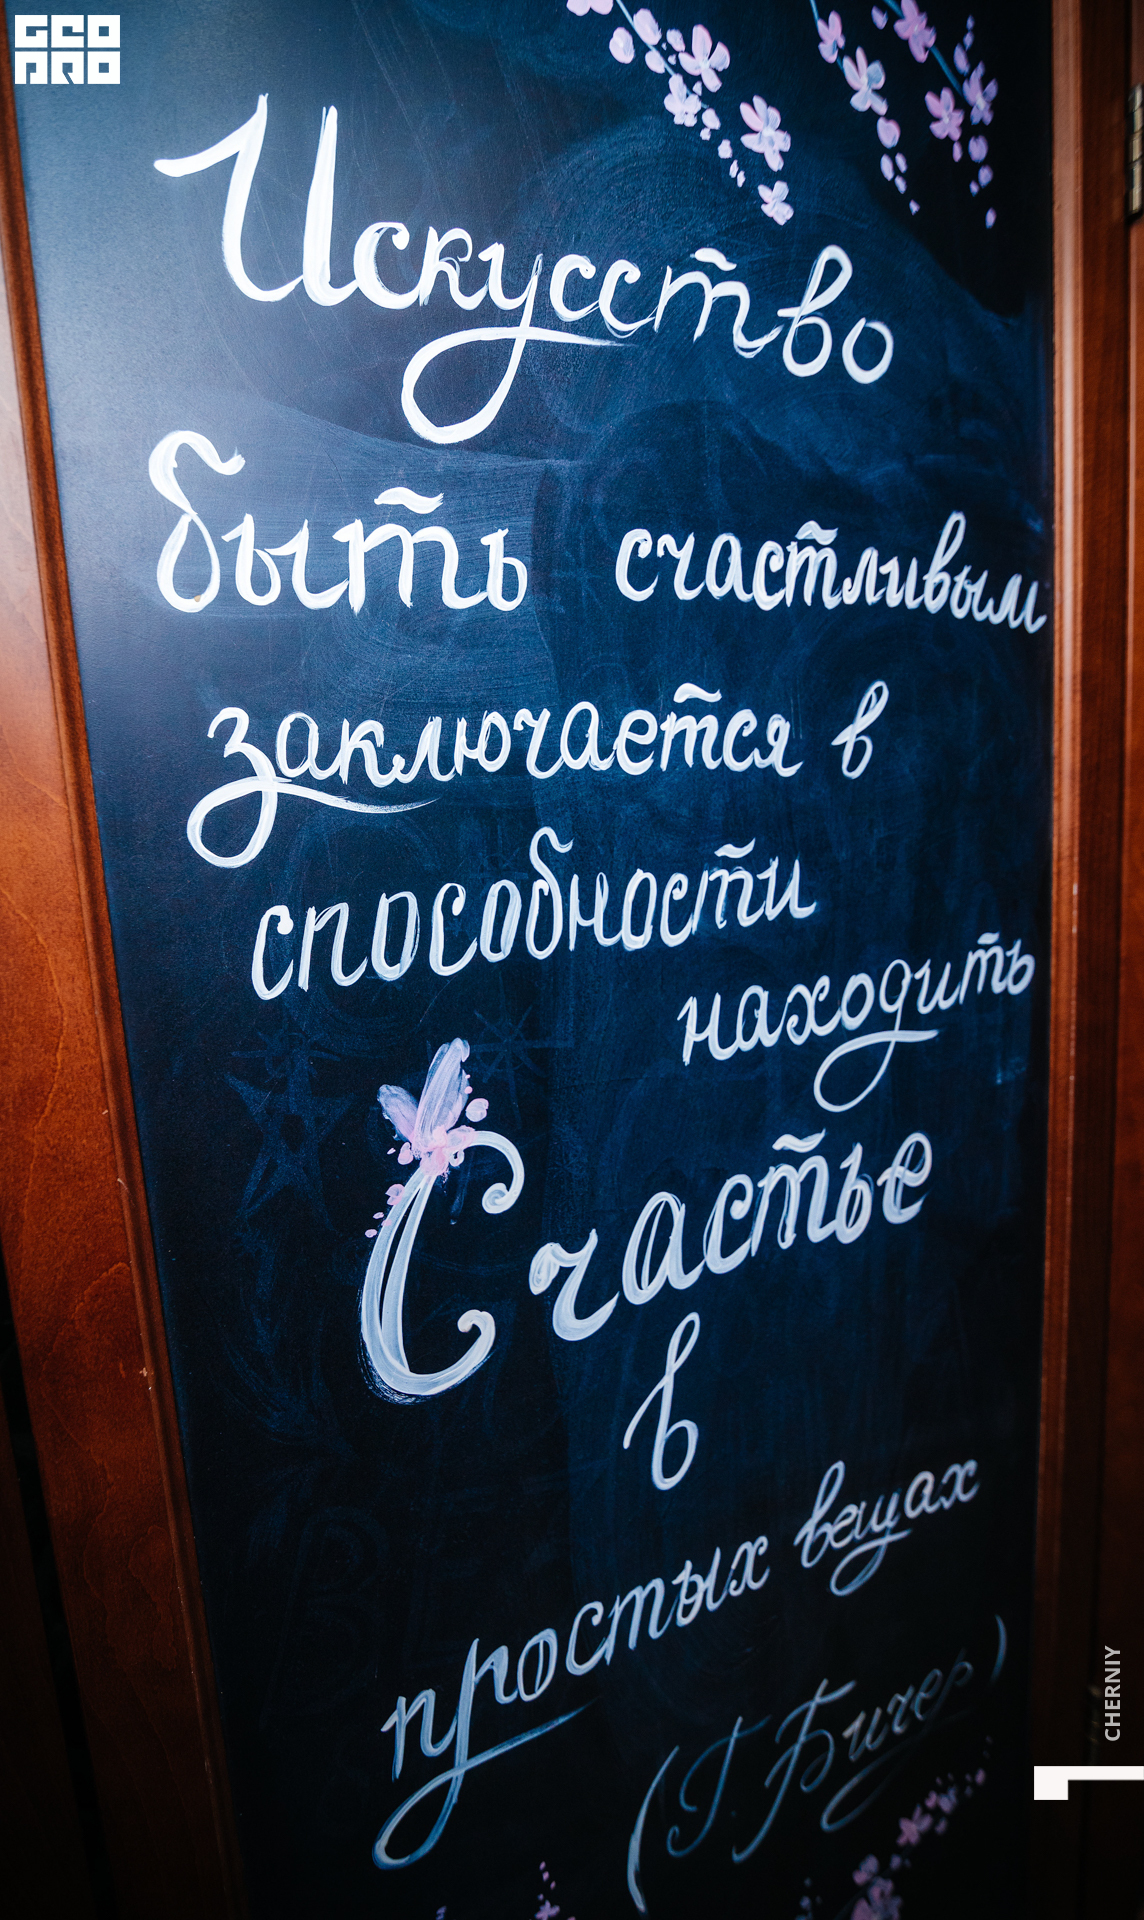 GEO
PRO
Искусство
быть счастливым
заключается в
способности
находить
Счастье
в
простых вещах
(Г. Бичер)
CHERNIY